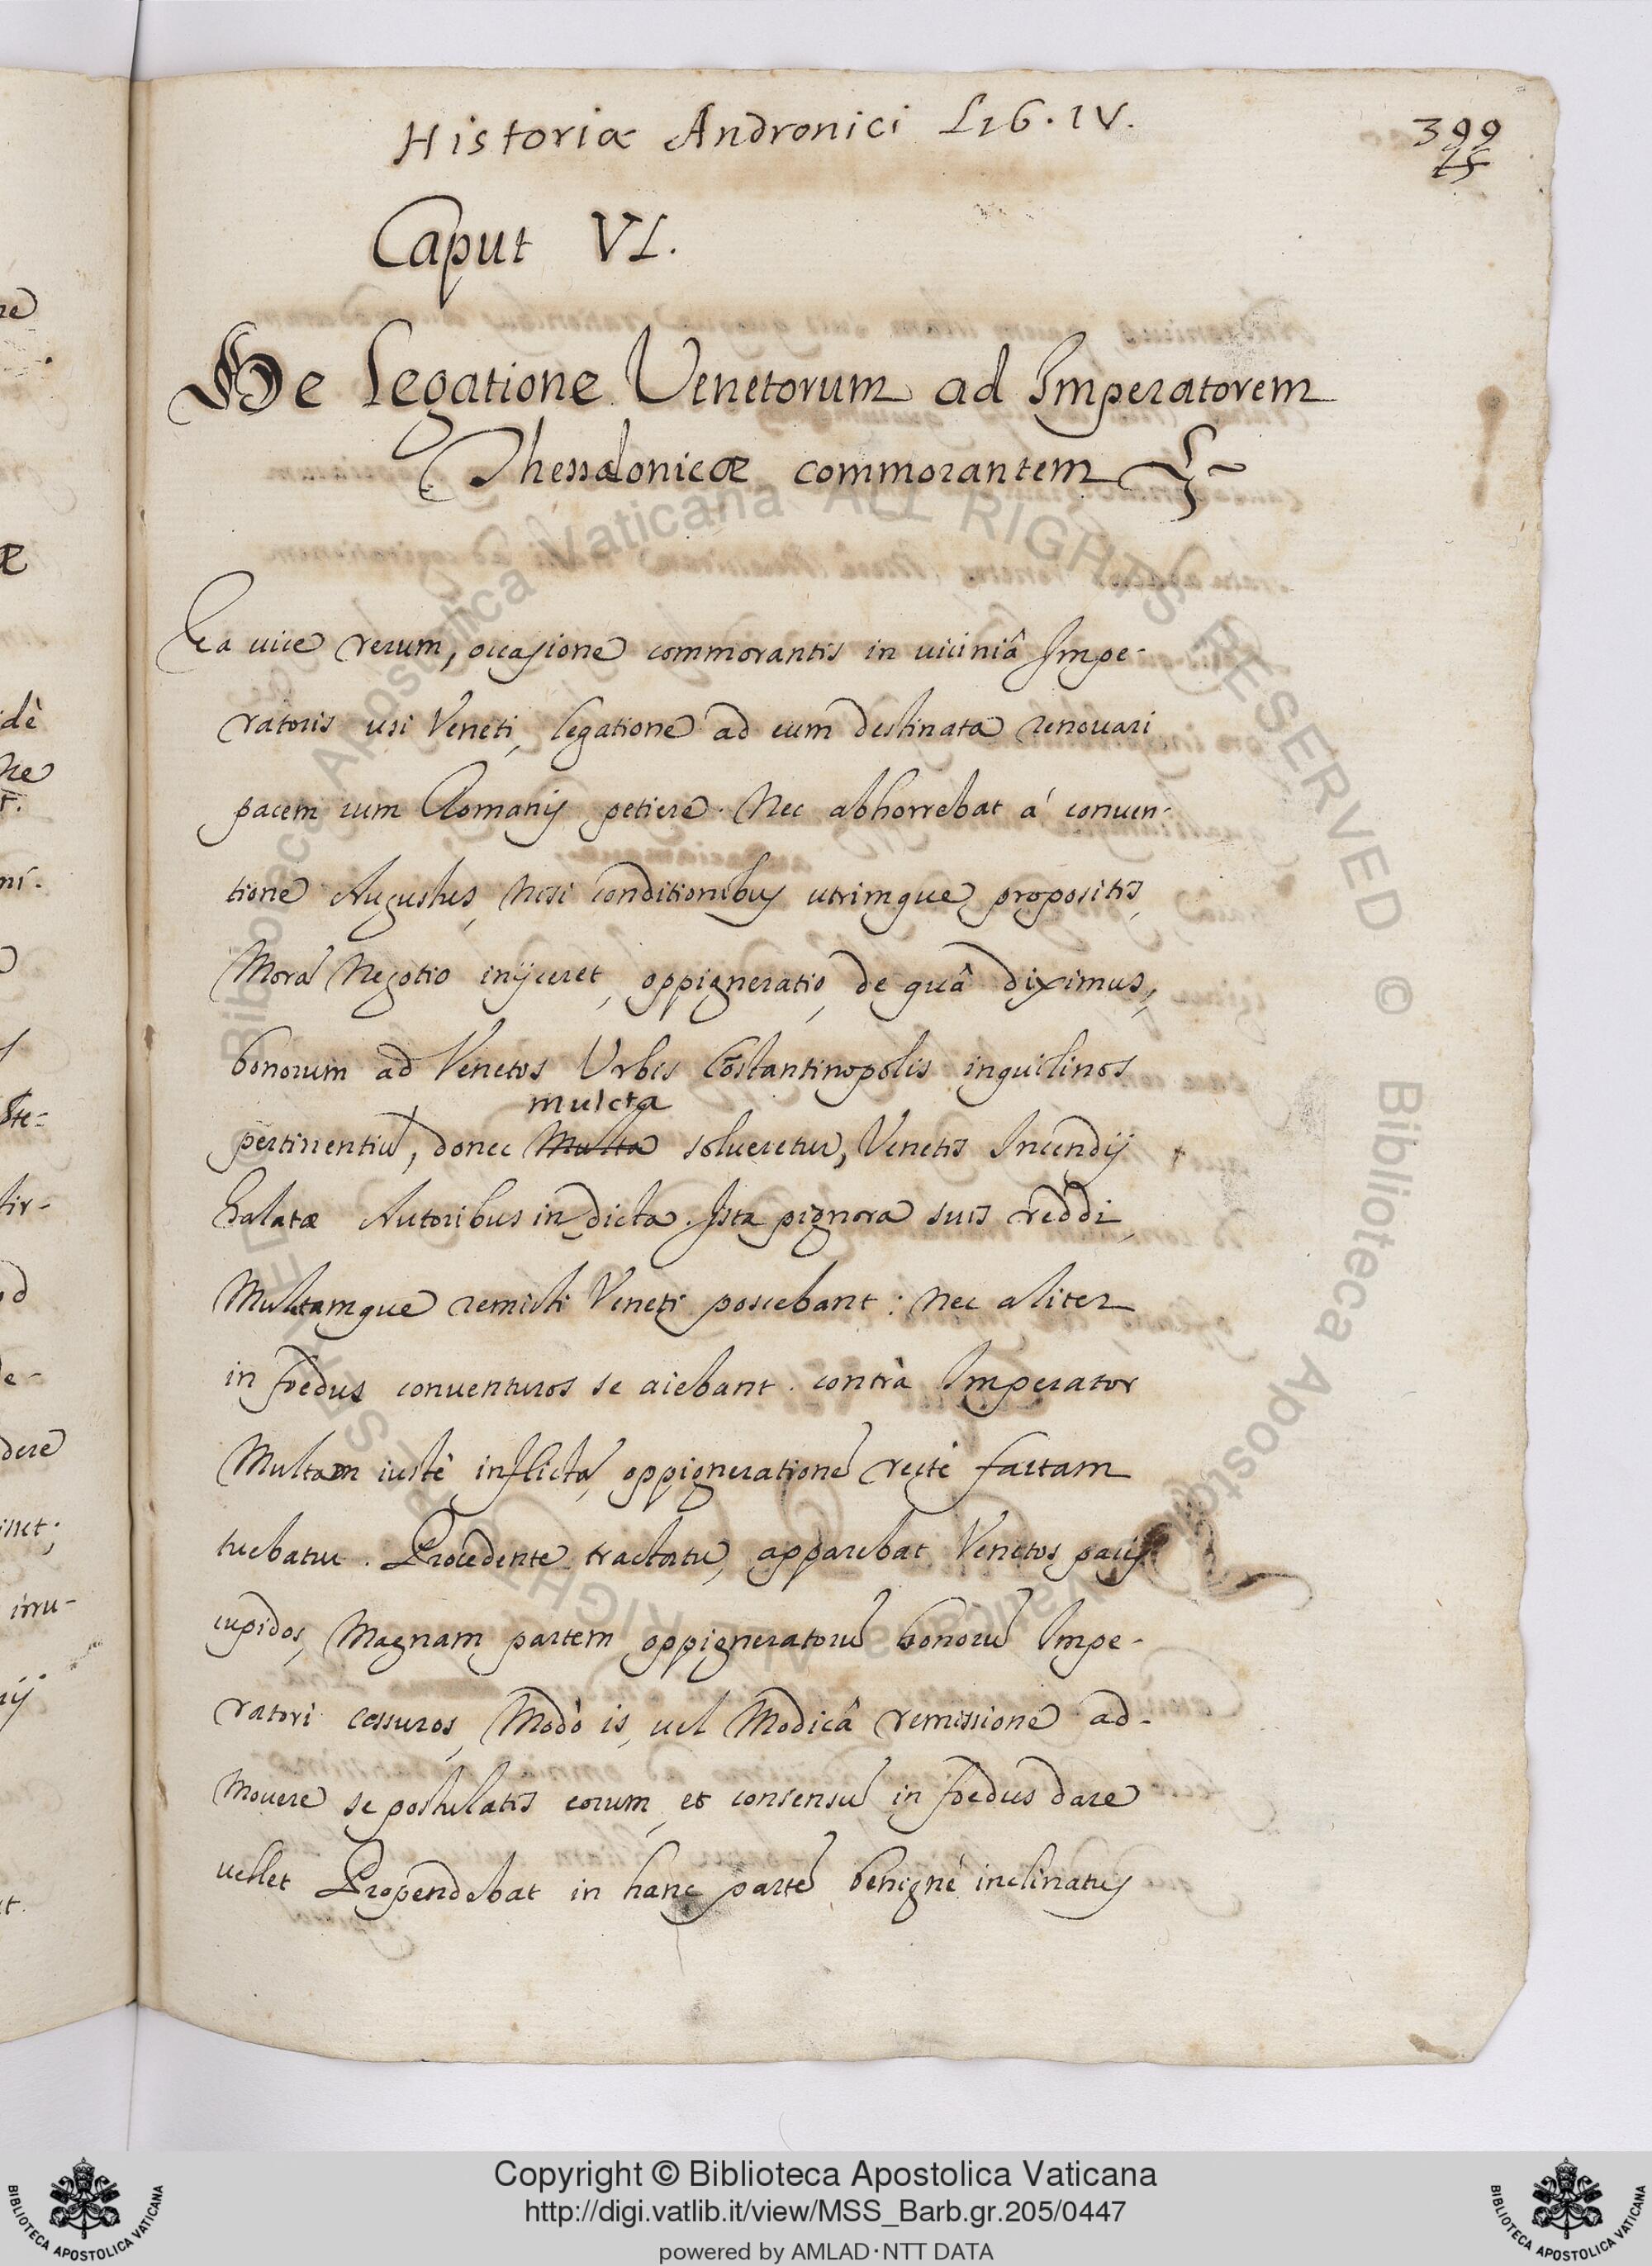 Historiæ Andronici Lib. IV.
399
25
Caput VI.
De Legatione Venetorum ad Imperatorem
Thessalonicæ commorantem
Ea uice rerum, occasione commorantis in uiciniâ Impe-
ratoris usi Veneti, legatione ad eum destinata renouari
pacem cum Romanis petiere. Nec abhorrebat à conuen-
tione Augustus, nisi conditionibus utrimque propositis,
Morã Negotio inijceret, oppigneratio, de quâ diximus,
bonorum ad Venetos Urbis Cõstantinopolis inquilinos
mulcta
pertinentiũ, donec Multa solueretur, Venetis Incendij
Galatæ Autoribus indicta. Ista pignora suis reddi,
Mulctamque remitti Veneti poscebant: nec aliter
in foedus conuenturos se aiebant. contrà Imperator
Multam iustè inflictã, oppignerationẽ rectè factam
tuebatur. Procedente tractatu, apparebat Venetos pacis
cupidos, Magnam partem oppigneratorũ bonorũ Impe-
ratori cessuros, Modò is, uel Modicâ remissione ad-
mouere se postulatis eorum, et consensũ in foedus dare
uellet Propendebat in hanc partẽ benignè inclinatus
Copyright © Biblioteca Apostolica Vaticana
http://digi.vatlib.it/view/MSS_Barb.gr.205/0447
powered by AMLAD·NTT DATA
BIBLIOTECA APOSTOLICA VATICANA
BIBLIOTECA APOSTOLICA VATICANA